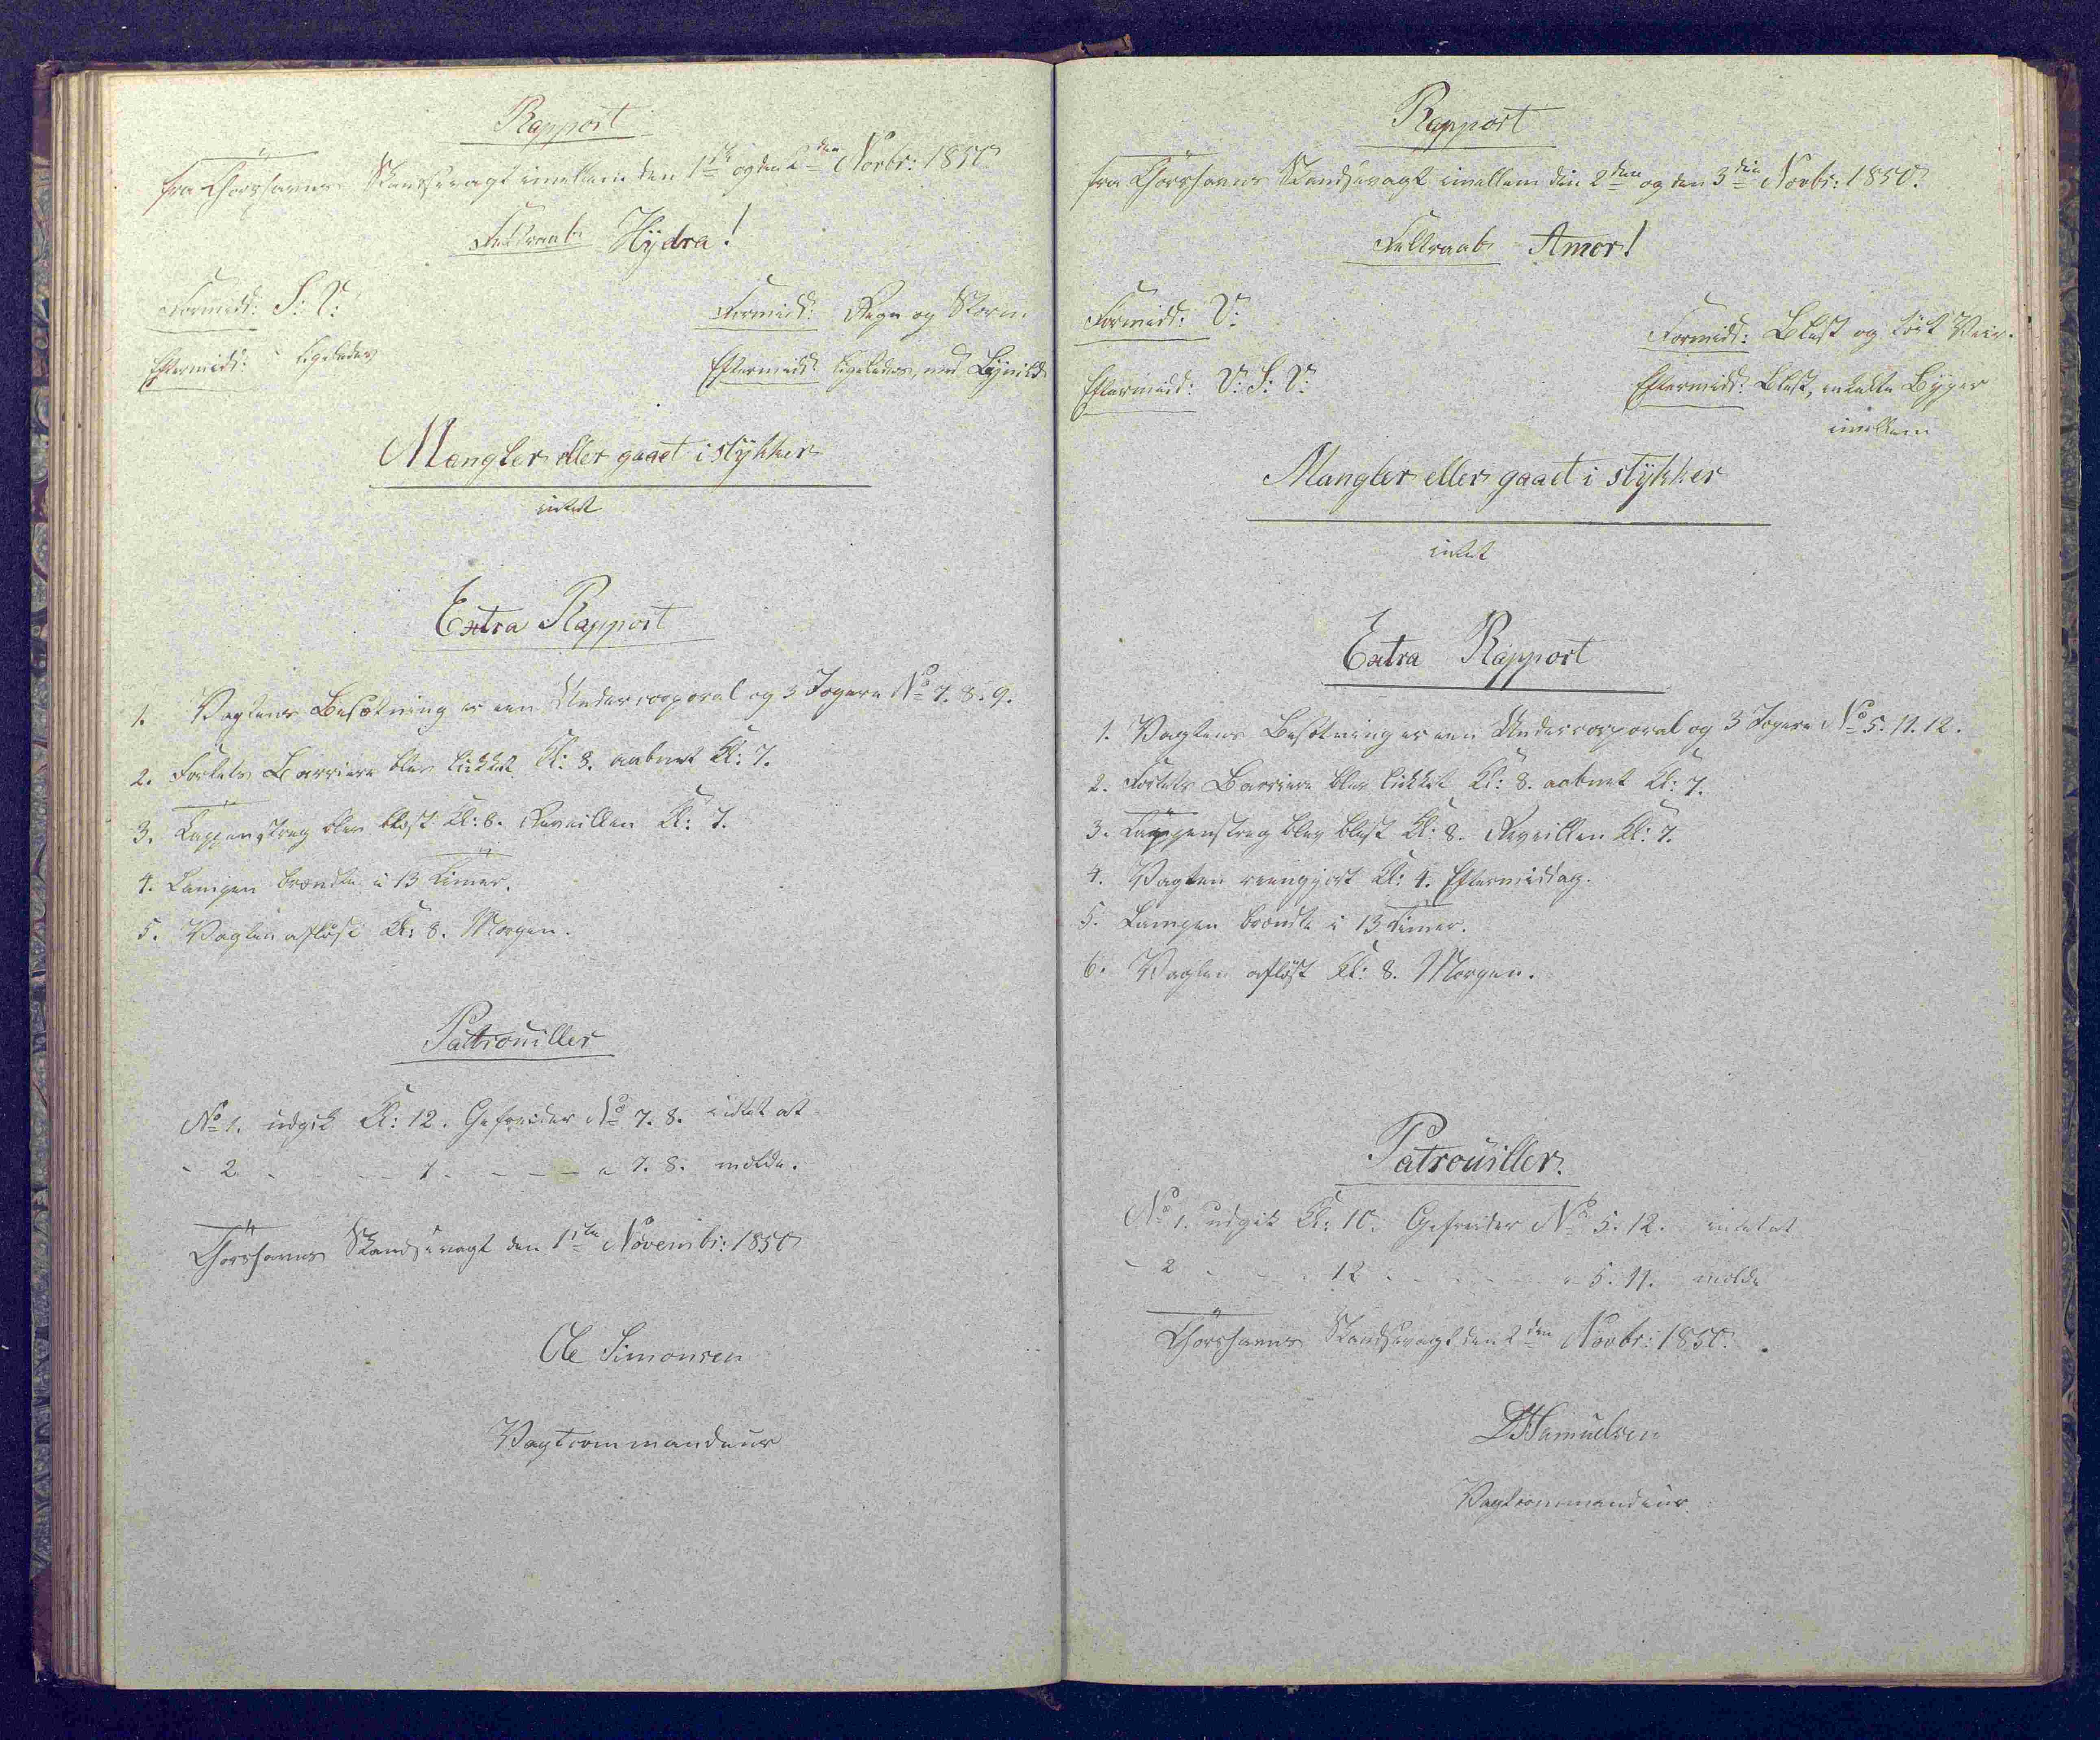 Rapport
fra Thorshavns Skandsevagt imellem den 1ste og den 2den Novbr: 1850
Feltraab Hÿdra!
Formidd: S: V:
Formidd: Regn og Storm.
Eftermidd: ligeledes
Eftermidd: ligeledes, med Lÿnild
Mangler eller gaaet i stÿkker
intet
Extra Rapport
1. Vagtens Besætning er een Undercorporal og 3 Jægere No 7. 8. 9.
2. Fortets Barriere blev lukket Kl: 8. aabnet Kl: 7.
3. Tappenstreg blev blæst Kl: 8. Reveillen Kl: 7.
4. Lampen brændte i 13 Timer.
5. Vagten afløst Kl: 8. Morgen.
Pattrouiller
No 1. udgik Kl: 12. Gefreider No 7. 8. intet at
- 2 - - - 1 - - - - " 7. 8. melde.
Thorshavns Skandsevagt den 1ste Novembr: 1850
Ole Simonsen
Vagtcommandeur
Rapport
fra Thorshavns Skandsevagt imellem den 2den og den 3die Novbr: 1850.
Feltraab Amor!
Formidd: V:
Formidd: Blæst og tört Veir.
Eftermidd: V: S: V:
Eftermidd: Blæst, enkelte Bÿger
imellem
Mangler eller gaaet i stÿkker
intet
Extra Rapport
1. Vagtens Besætning er een Undercorporal og 3 Jægere No 5. 11. 12.
2. Fortets Barriere blev lukket Kl: 8. aabnet Kl: 7.
3. Tappenstreg blev blæst Kl: 8. Reveillen Kl: 7.
4. Vagten reengjort Kl: 4. Eftermiddag.
5. Lampen brændte i 13 Timer.
6. Vagten afløst Kl: 8. Morgen.
Patrouiller.
No 1. udgik Kl: 10. Gefreider No 5. 12. intet at
- 2 - - - 12 - - - - " 5. 11. melde
Thorshavns Skandsevagt den 2den Novbr: 1850.
Samuelsen
Vagtcommandeur.